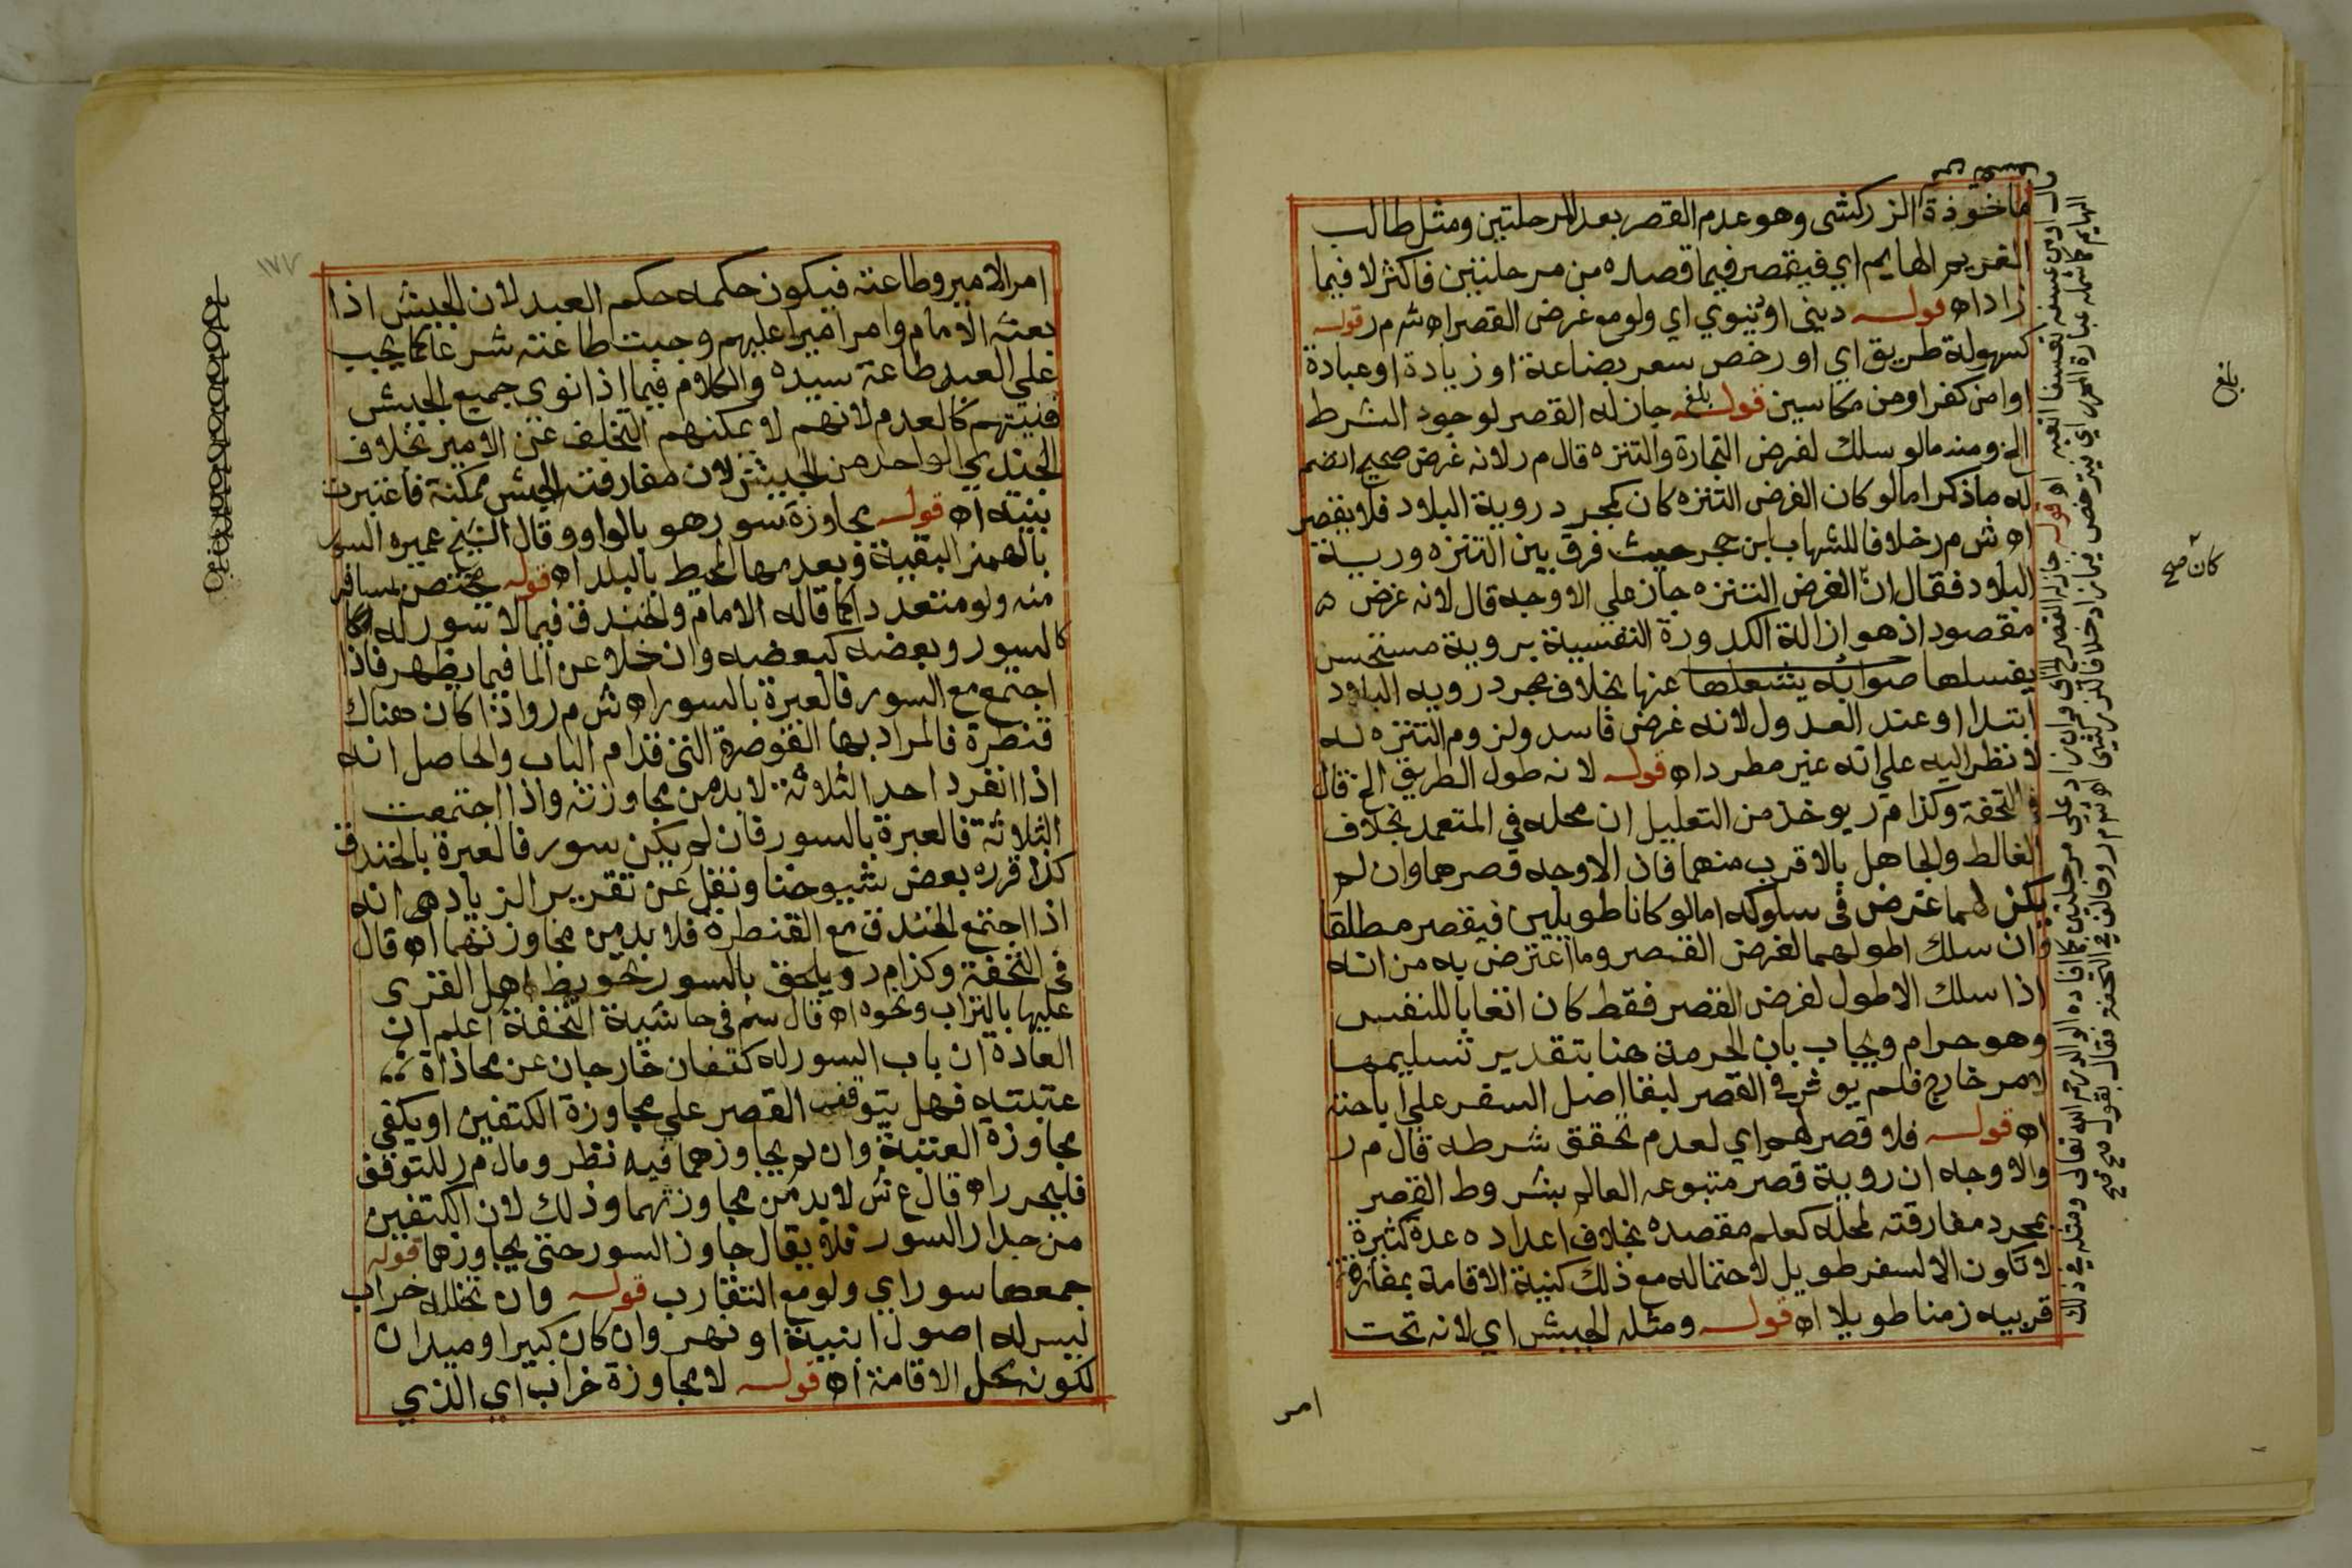 ماخوذة الزركشي وهو عدم القصر بعد المرحلتين ومثل طالب
الغريم الهايم اي فيقصر فيما قصده من مرحلتين فاكثر لا فيما
زاد اه قوله ديني او دنيوي اي ولو مع غرض القصر اه ش م ر قوله
كسهولة طريق اي او رخص سعر بضاعة او زيارة او عبادة
او امن كفر او من مكاسين قوله جاز له القصر لوجود الشرط
الخ ومنه مالو سلك لغرض التجارة والتنزه قال م ر لانه غرض صحيح انضم
له ما ذكر اما لو كان الغرض التنزه كان كمجرد روية البلاد فلا يقصر
اه ش م ر خلافا للشهاب ابن حجر حيث فرق بين التنزه وروية
البلاد فقال ان الغرض التنزه جاز علي الاوجه قال لانه غرض
مقصود اذ هو ازالة الكدورة النفسية بروية مستحسن
يغسلها صوابه يشغلها عنها بخلاف مجرد رويه البلاد
ابتدا او عند العدول لانه غرض فاسد ولزوم التنزه له
لا نظر اليه علي انه غير مطرد اه قوله لانه طول الطريق الخ قال
في التحفة وكذا م ر يوخذ من التعليل ان محله في المتعمد بخلاف
الغالط والجاهل بالاقرب منهما فان الاوجه قصرهما وان لم
يكن لهما غرض في سلوكه اما لو كانا طويلين فيقصر مطلقا
وان سلك اطولهما لغرض القصر وما اعترض به من انه
اذا سلك الاطول لغرض القصر فقط كان اتعابا للنفس
وهو حرام ويجاب بان الحرمة هنا بتقدير تسليمها
لامر خارج فلم يوثر في القصر لبقا اصل السفر علي اباحته
اه قوله فلا قصر لهم اي لعدم تحقق شرطه قال م ر
والاوجه ان روية قصر متبوعه العالم بشروط القصر
بمجرد مفارقته لمحله كعلم مقصده بخلاف اعداده عدة كثيرة
لا تكون الا لسفر طويل لاحتماله مع ذلك كنية الاقامة بمفازة
قريبه زمنا طويلا اه قوله ومثله الجيش اي لانه تحت
امر
بلغ
كان صح
١٧٧
امر الامير وطاعته فيكون حكمه حكم العبد لان الجيش اذا
بعثه الامام وامر اميرا عليهم وجبت طاعته شرعا كما يجب
علي العبد طاعة سيده والكلام فيما اذا نوى جميع الجيش
فنيتهم كالعدم لانهم لا يمكنهم التخلف عن الامير بخلاف
الجندي الواحد من الجيش لان مفارقته الجيش ممكنة فاعتبرت
بنيته اه قوله مجاوزة سور هو بالواو وقال الشيخ عميره السور
بالهمز البقية وبعدمها المحيط بالبلد اه قوله يختص بمسافر
منه ولو متعددا كما قاله الامام والخندق فيما لا سور له
كالسور وبعضه كبعضه وان خلا عن الما فيما يظهر فاذا
اجتمع مع السور فالعبرة بالسور اه ش م ر واذا كان هناك
قنطرة فالمراد بها القوصرة التي قدام الباب والحاصل انه
اذا انفرد احد الثلاثة لا بد من مجاوزته واذا اجتمعت
الثلاثة فالعبرة بالسور فان لم يكن سور فالعبرة بالخندق
كذا قرره بعض شيوخنا ونقل عن تقرير الزيادي انه
اذا اجتمع الخندق مع القنطرة فلا بد من مجاوزتهما اه قال
في التحفة وكذا م ر ويلحق بالسور تحويط اهل القرى
عليها بالتراب ونحوه اه قال سم في حاشية التحفة اعلم ان
العادة ان باب السور له كتفان خارجان عن محاذاة
عتبته فهل يتوقف القصر علي مجاوزة الكتفين او يكفي
مجاوزة العتبة وان لم يجاوزهما فيه نظر ومال م ر للتوقف
فليحرر اه قال ع ش لا بد من مجاوزتهما وذلك لان الكتفين
من جدار السور فلا يقال جاوز السور حتى يجاوزهما قوله
جمعها سور اي ولو مع التقارب قوله وان تخلله خراب
ليس له اصول ابنية او نهر وان كان كبيرا او ميدان
لكونه محل الاقامة اه قوله لا مجاوزة خراب اي الذي